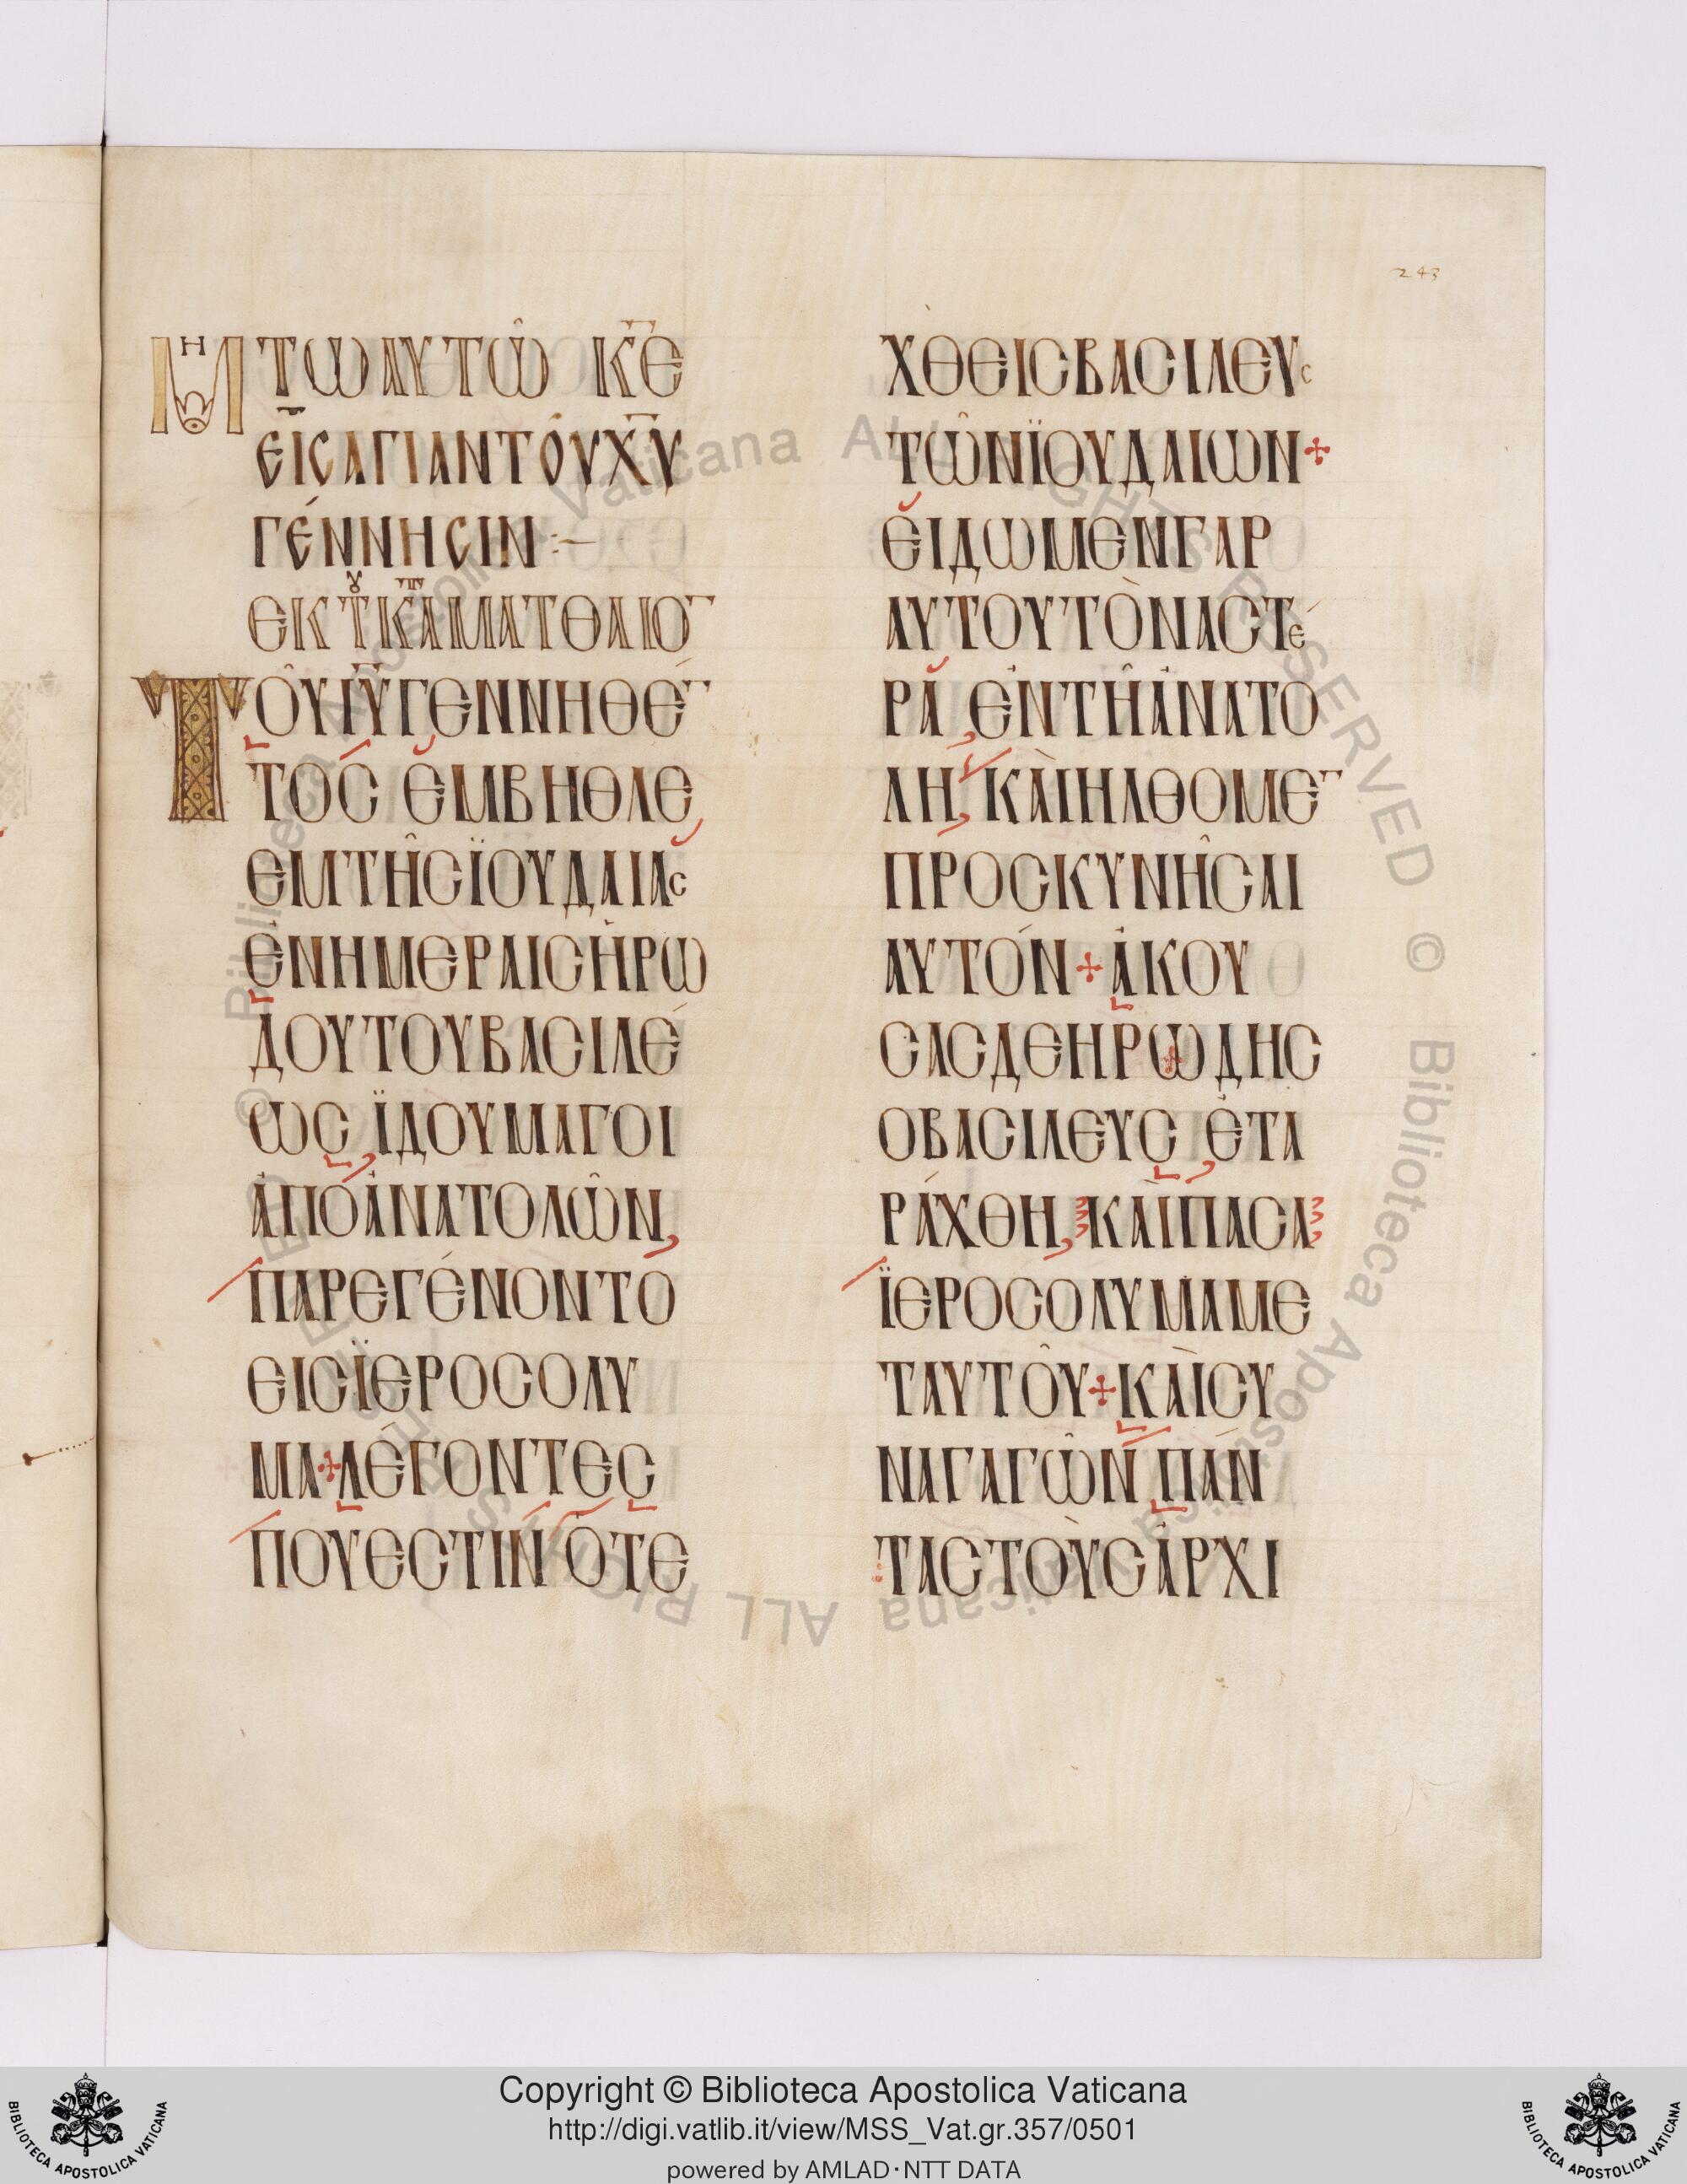 243
ΜΗ ΤΩ ΑΥΤΩ ΚΕ
ΕΙΣ ΑΓΙΑΝ ΤΟΥ ΧΥ
ΓΕΝΝΗΣΙΝ :~
ΕΚ Τ ΚΑ ΜΑΤΘΑΙΟ
ΤΟΥ ΙΥ ΓΕΝΝΗΘΕ
ΤΟΣ ΕΜ ΒΗΘΛΕ
ΕΜ ΤΗΣ ΪΟΥΔΑΙΑΣ
ΕΝ ΗΜΕΡΑΙΣ ΗΡΩ
ΔΟΥ ΤΟΥ ΒΑΣΙΛΕ
ΩΣ, ΪΔΟΥ ΜΑΓΟΙ
ΑΠΟ ΑΝΑΤΟΛΩΝ,
ΠΑΡΕΓΕΝΟΝΤΟ
ΕΙΣ ΪΕΡΟΣΟΛΥ
ΜΑ + ΛΕΓΟΝΤΕΣ
ΠΟΥ ΕΣΤΙΝ Ο ΤΕ
ΧΘΕΙΣ ΒΑΣΙΛΕΥΣ
ΤΩΝ ΪΟΥΔΑΙΩΝ +
ΕΙΔΩΜΕΝ ΓΑΡ
ΑΥΤΟΥ ΤΟΝ ΑΣΤΕ
ΡΑ ΕΝ ΤΗ ΑΝΑΤΟ
ΛΗ, ΚΑΙ ΗΛΘΟΜΕ
ΠΡΟΣΚΥΝΗΣΑΙ
ΑΥΤΟΝ + ΑΚΟΥ
ΣΑΣ ΔΕ ΗΡΩΔΗΣ
Ο ΒΑΣΙΛΕΥΣ, ΕΤΑ
ΡΑΧΘΗ, ΚΑΙ ΠΑΣΑ
ΪΕΡΟΣΟΛΥΜΑ ΜΕ
Τ ΑΥΤΟΥ + ΚΑΙ ΣΥ
ΝΑΓΑΓΩΝ ΠΑΝ
ΤΑΣ ΤΟΥΣ ΑΡΧΙ
© Biblioteca Apostolica Vaticana ALL RIGHTS RESERVED © Biblioteca Apostolica Vaticana ALL RIGHTS RESERVED
Copyright © Biblioteca Apostolica Vaticana
http://digi.vatlib.it/view/MSS_Vat.gr.357/0501
powered by AMLAD·NTT DATA
BIBLIOTECA APOSTOLICA VATICANA
BIBLIOTECA APOSTOLICA VATICANA